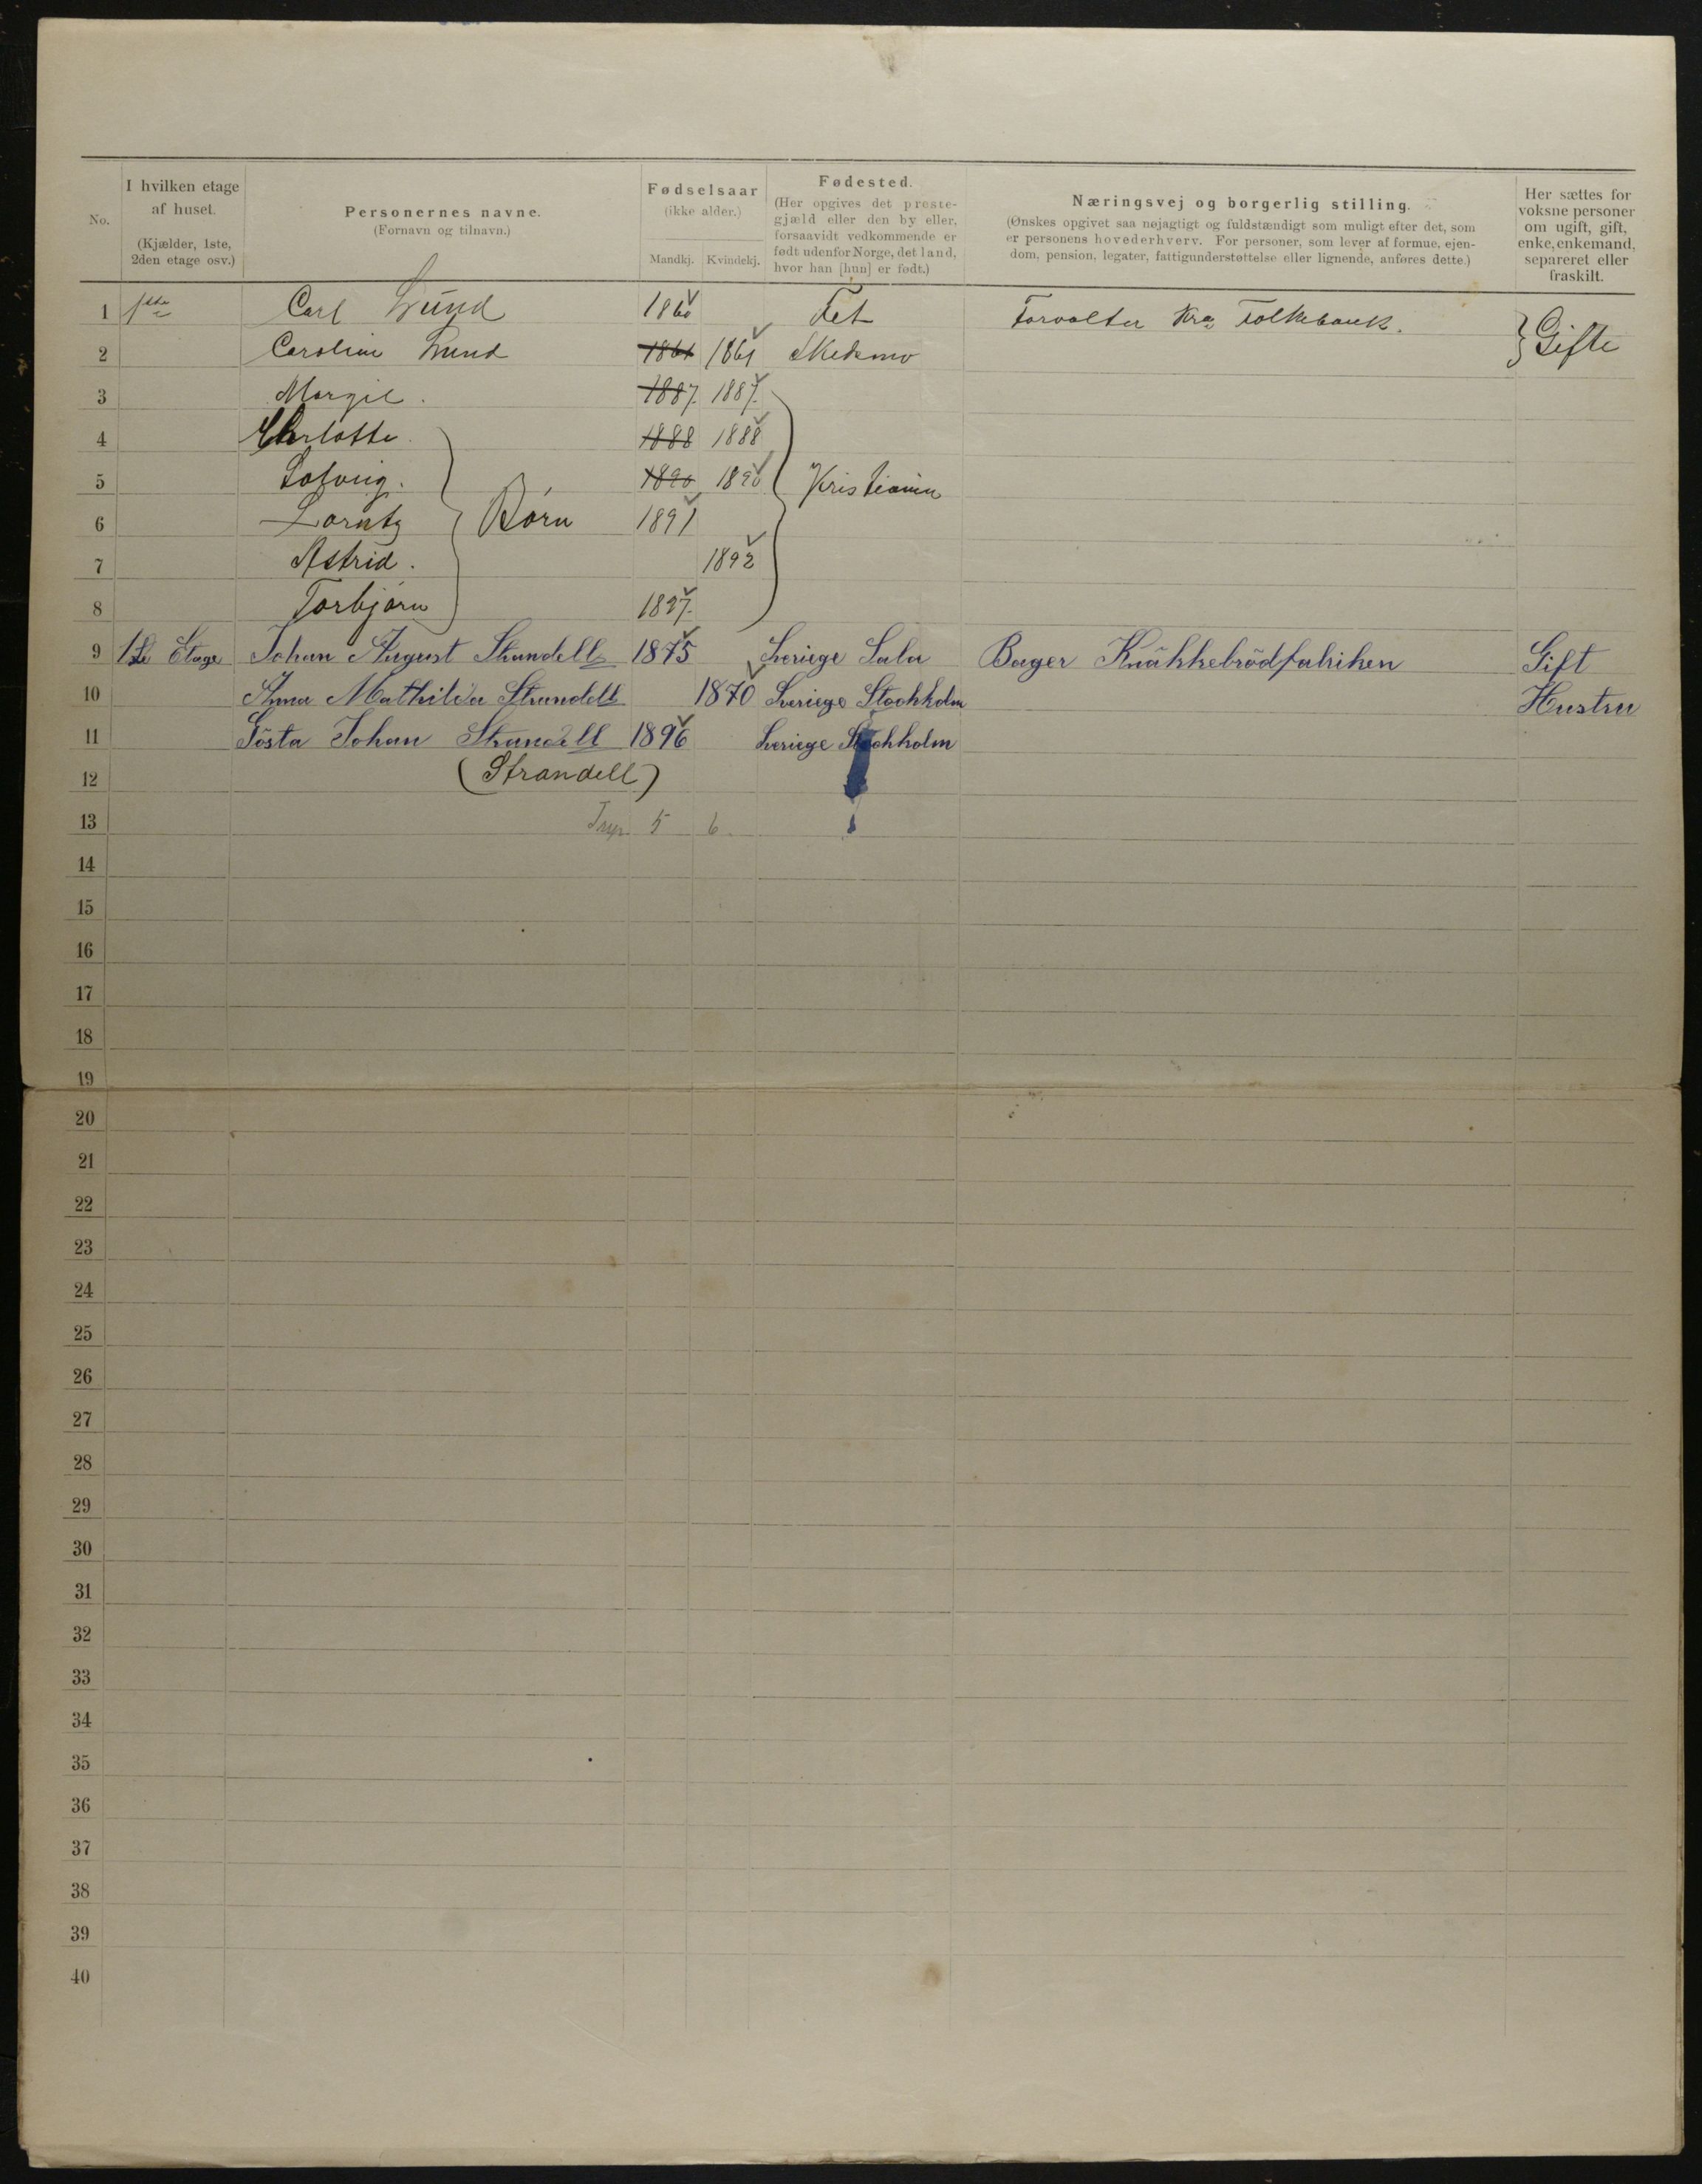 No.
I hvilken etage af huset. (Kjælder, 1ste, 2den etage osv.)
Personernes navne. (Fornavn og tilnavn.)
Fødselsaar (ikke alder.) Mandkj. Kvindekj.
Fødested. (Her opgives det prestegjæld eller den by eller, forsaavidt vedkommende er født udenfor Norge, det land, hvor han [hun] er født.)
Næringsvej og borgerlig stilling. (Ønskes opgivet saa nøjagtigt og fuldstændigt som muligt efter det, som er personens hovederhverv. For personer, som lever af formue, ejendom, pension, legater, fattigunderstøttelse eller lignende, anføres dette.)
Her sættes for voksne personer om ugift, gift, enke, enkemand, separeret eller fraskilt.
1 1ste Carl Lund 1860 Fet Forvalter Kra Folkebank. Gifte
2 Caroline Lund 1861 1861 Skedsmo
3 Margit. 1887. 1887.
4 Charlotte. 1888 1888
5 Solveig. 1890 1890 Kristiania
6 Lorntz Børn 1891
7 Astrid. 1892
8 Torbjørn 1897.
9 1ste Etage Johan August Strandell 1875 Sveriege Sala Bager Knäkkebrödfabriken Gift
10 Anna Mathilda Strandell 1870 Sveriege Stockholm Hustru
11 Gösta Johan Strandell 1896 Sveriege Stockholm
12 (Strandell)
13 5 6
14
15
16
17
18
19
20
21
22
23
24
25
26
27
28
29
30
31
32
33
34
35
36
37
38
39
40